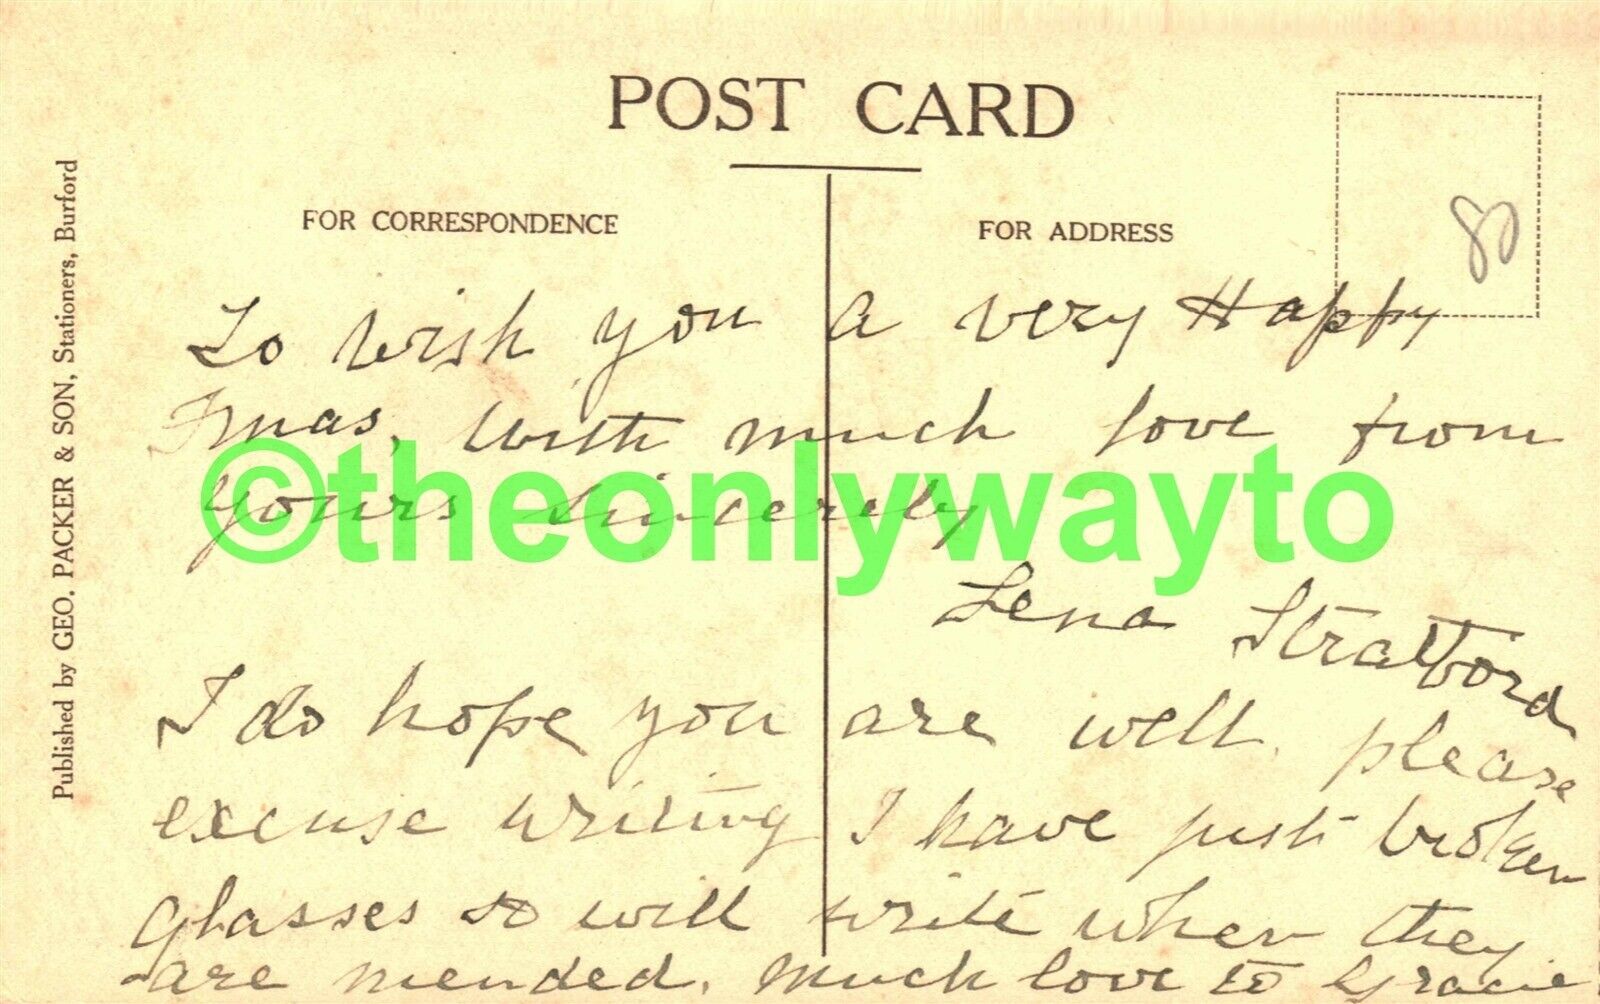 POST CARD
FOR CORRESPONDENCE
FOR ADDRESS
80
Published by GEO. PACKER & SON, Stationers, Burford
To wish you a very Happy
Xmas, with much love from
yours sincerely
Lena Stratford
I do hope you are well, please
excuse writing I have just broken
glasses so will write when they
are mended. Much love to Gracie
©theonlywayto